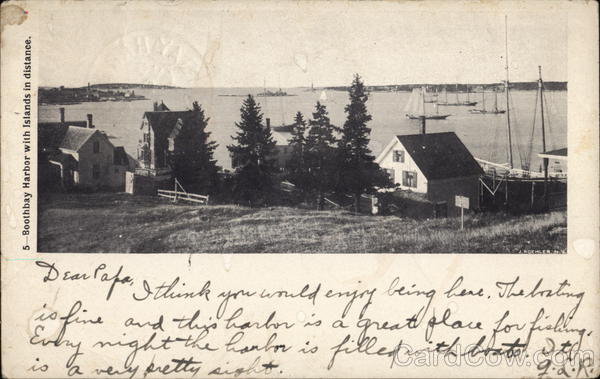 5 - Boothbay Harbor with Islands in distance.
J. KOEHLER, N.Y.
Dear Papa,
I think you would enjoy being here. The boating
is fine and this harbor is a great place for fishing.
Every night the harbor is filled with boats. It
is a very pretty sight.
CardCow.com